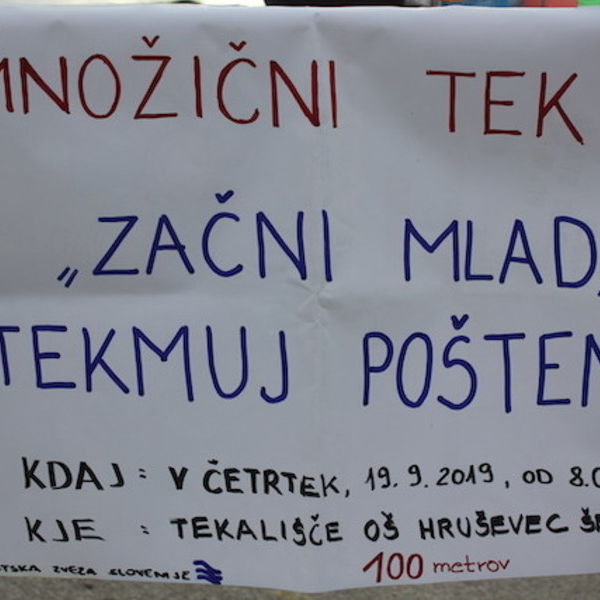 MNOŽIČNI TEK
„ZAČNI MLAD,
TEKMUJ POŠTEN
KDAJ : V ČETRTEK, 19.9.2019, OD 8.0
KJE : TEKALIŠČE OŠ HRUŠEVEC ŠE
TSKA ZVEZA SLOVENIJE 100 metrov